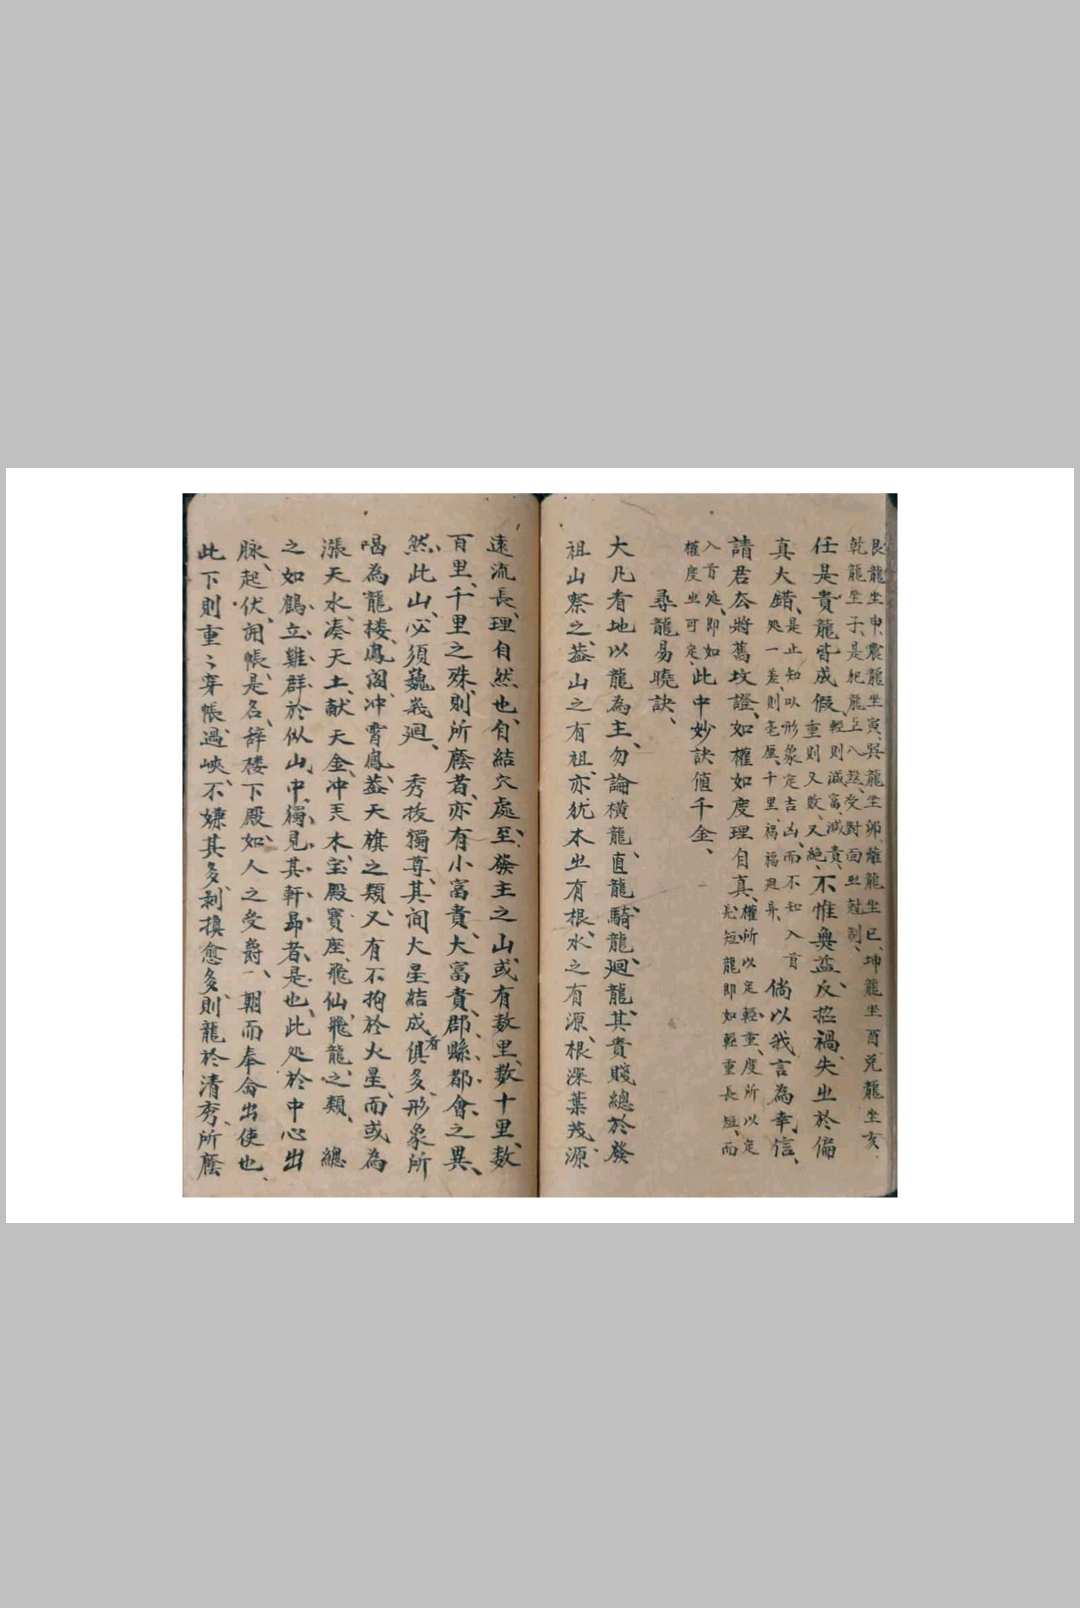 艮龍坐申、震龍坐寅、巽龍坐卯、離龍坐巳、坤龍坐酉兌龍坐亥、
乾龍坐子、是犯龍上八煞、受對面坐尅制、
任是貴龍皆成假、輕則減富、減貴、重則又敗、又絕、不惟無益、反招禍、失坐於偏
真大錯、是止知以形象定吉凶、而不知入首处一差、則毫厘、千里、禍福迥异、倘以我言為幸信、
請君夳將舊坟證、如權如度理自真、權所以定輕重、度所以定長短、龍即如輕重長短、而
入首処、即如權度坐可定、此中妙訣值千金、
尋龍易曉訣、
大凡看地以龍為主、勿論橫龍、直龍、騎龍、廻龍、其貴賤總於發
祖山察之、蓋山之有祖、亦犹木坐有根、水之有源、根深葉茂、源
遠流長、理自然也、自結穴處、至發主之山、或有数里、数十里、数
百里、千里之殊、則所廕者、亦有小富貴、大富貴、郡縣都會之異、
然此山、必須巍峩廻、秀拔獨尊、其间大星結成者俱多、形象所
喝為龍楼、鳳阁、冲霄鳳蓋天旗之類、又有不拘於火星、而或為
漲天水、凑天土、献天金、冲天木、宝殿寶座、飛仙、飛龍之類、總
之如鶴立雞群、於似山中、獨見其軒昂者、是也、此処於中心出
脉、起伏、開帳、是名、辞楼下殿、如人之受爵、一朝而奉命出使也、
此下則重〻穿帳、過峽、不嫌其多、剥換愈多、則龍於清秀、所廕